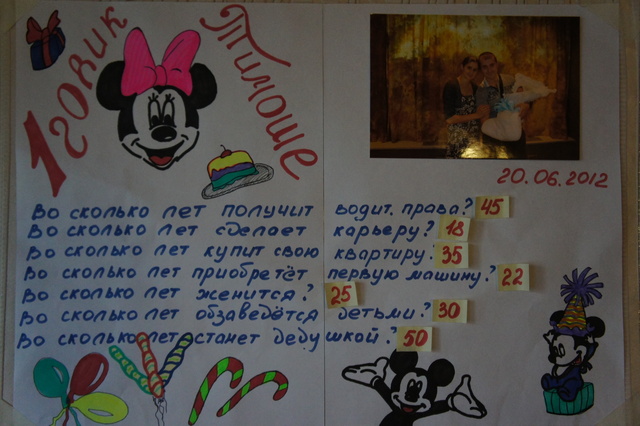 1 годик
Тимоше
20.06.2012
Во сколько лет получит водит. права? 45
Во сколько лет сделает карьеру? 18
Во сколько лет купит свою квартиру? 35
Во сколько лет приобретёт первую машину? 22
Во сколько лет женится? 25
Во сколько лет обзаведётся детьми? 30
Во сколько лет станет дедушкой? 50